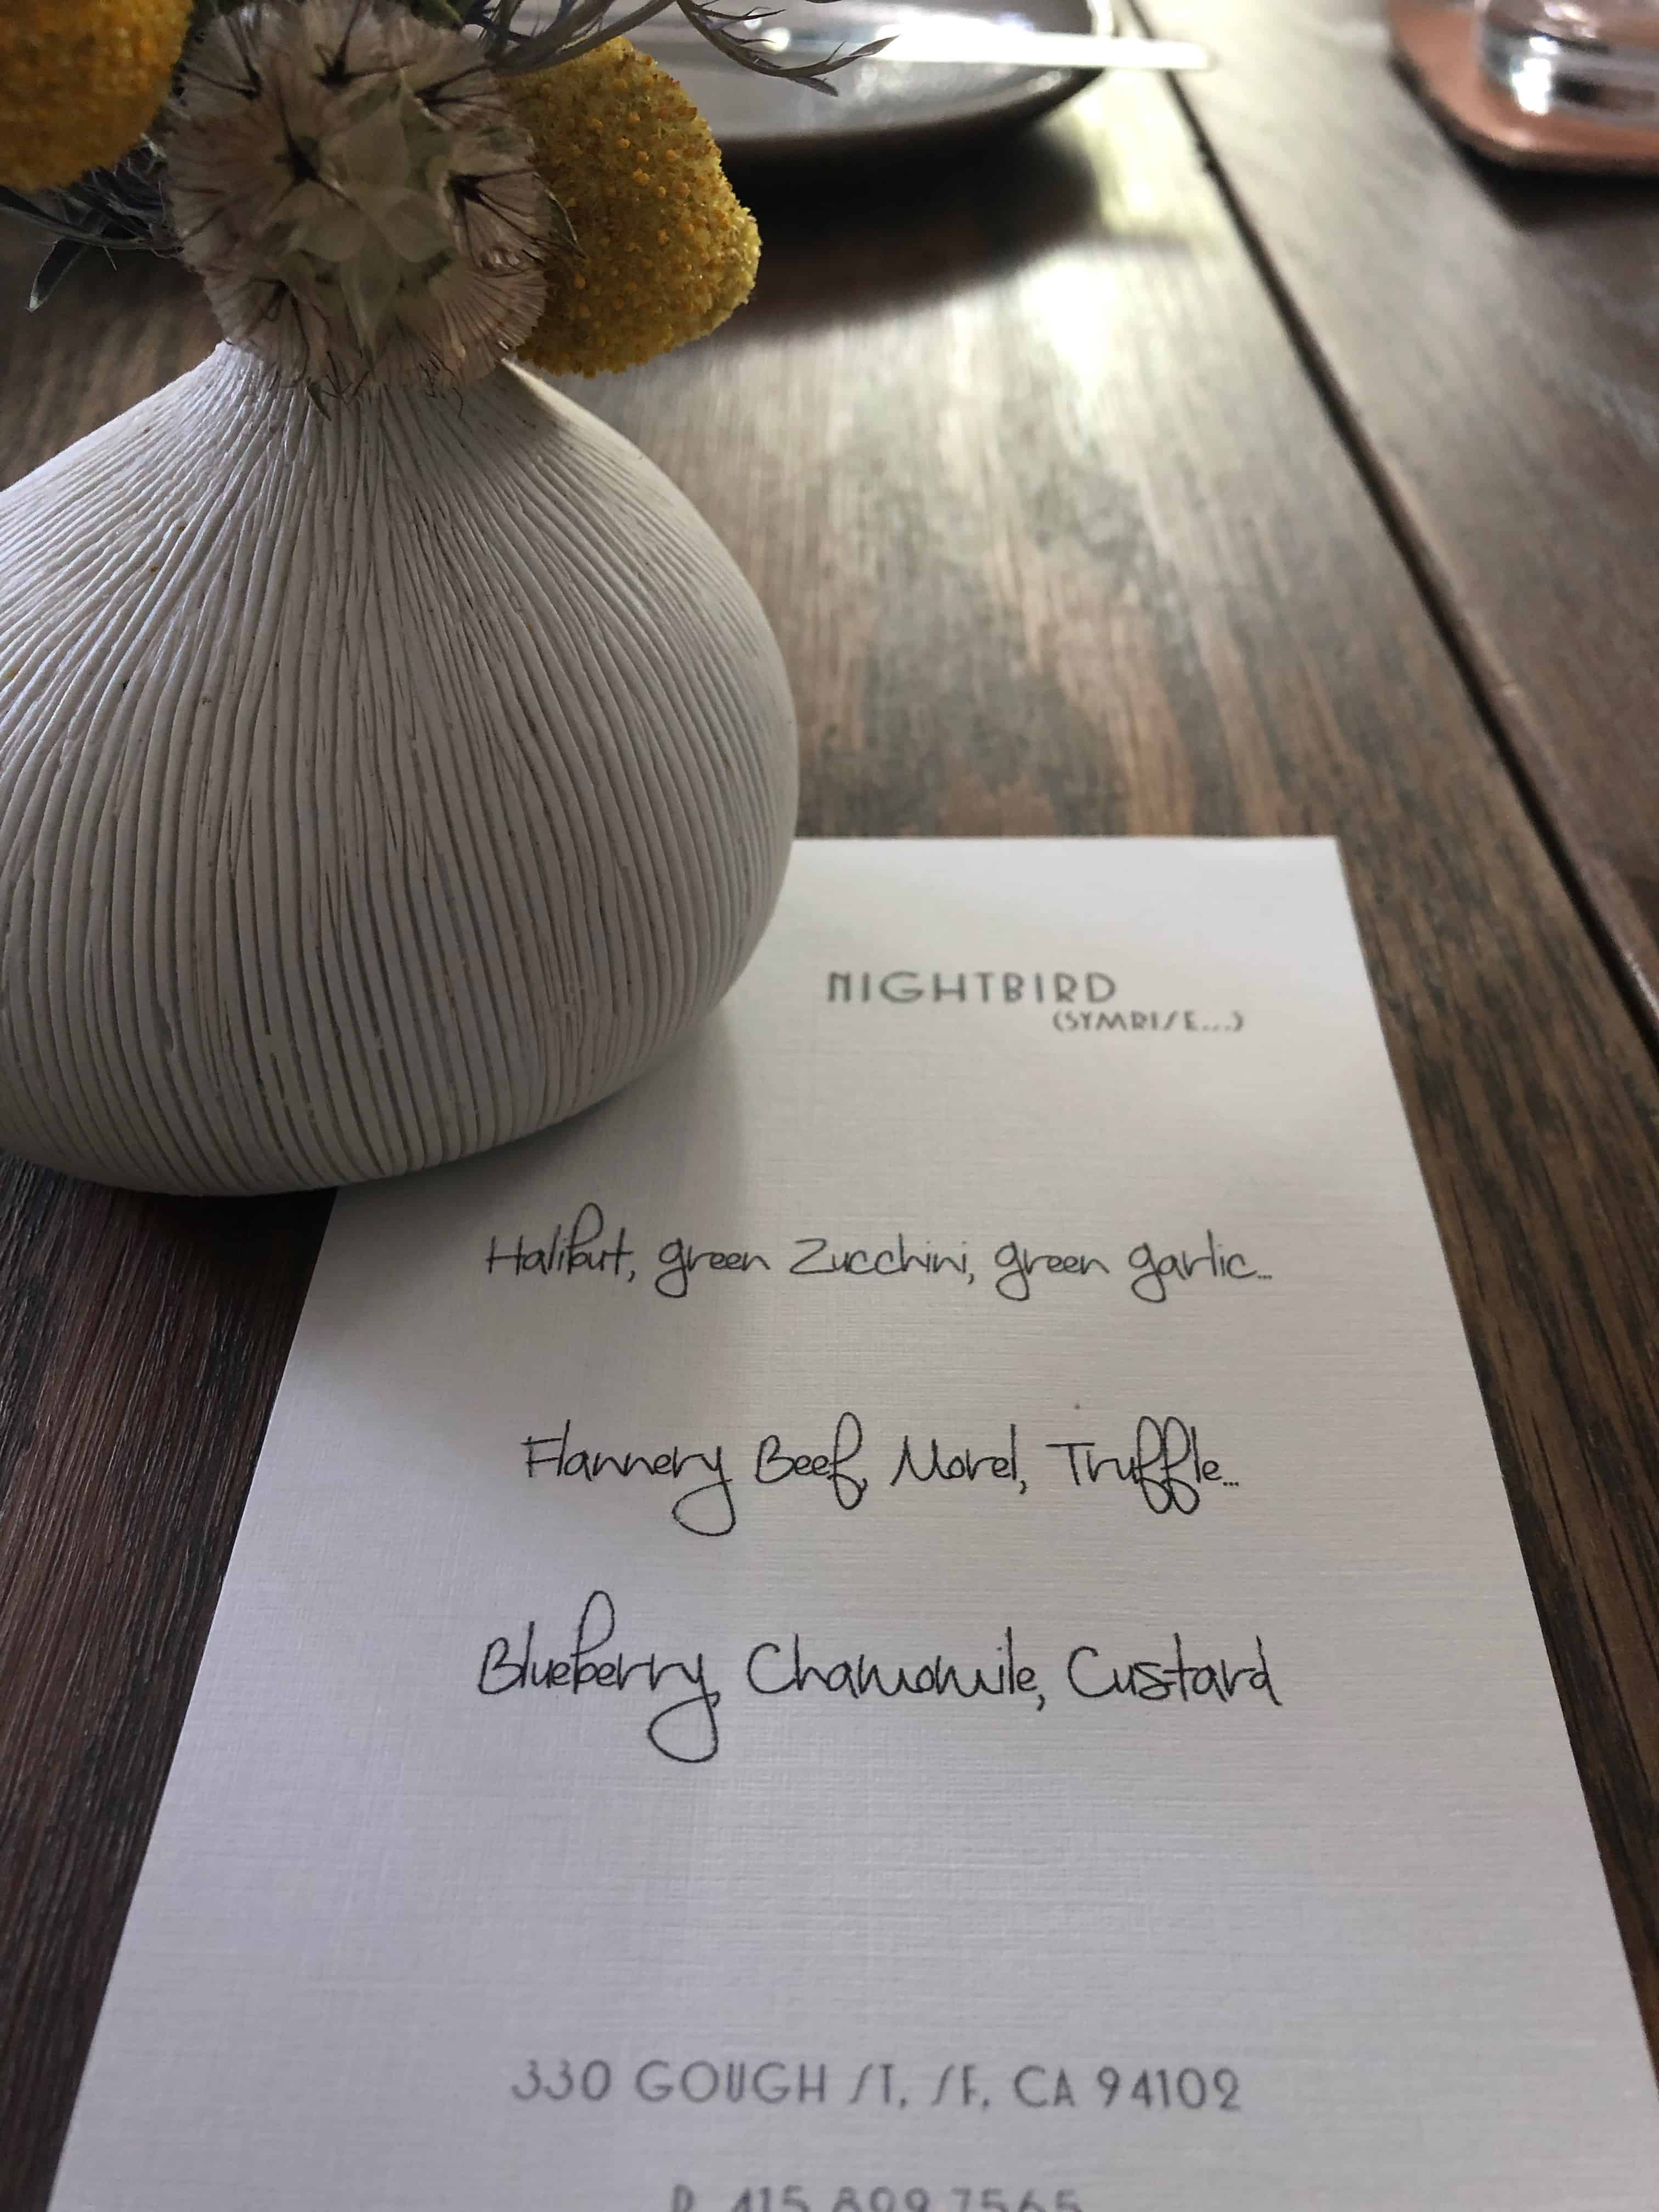 NIGHTBIRD
(SYMRISE...)
Halibut, green Zucchini, green garlic...
Flannery Beef, Morel, Truffle...
Blueberry, Chamomile, Custard
330 GOUGH ST, SF, CA 94102
P. 415.829.7565